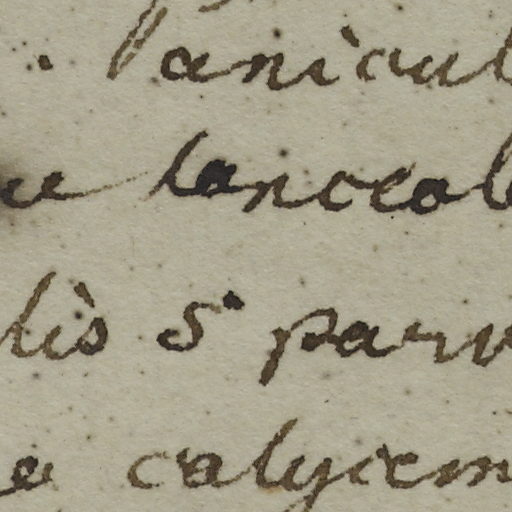 . Panicul
ce lanceol
lis 5 parv
a calycem